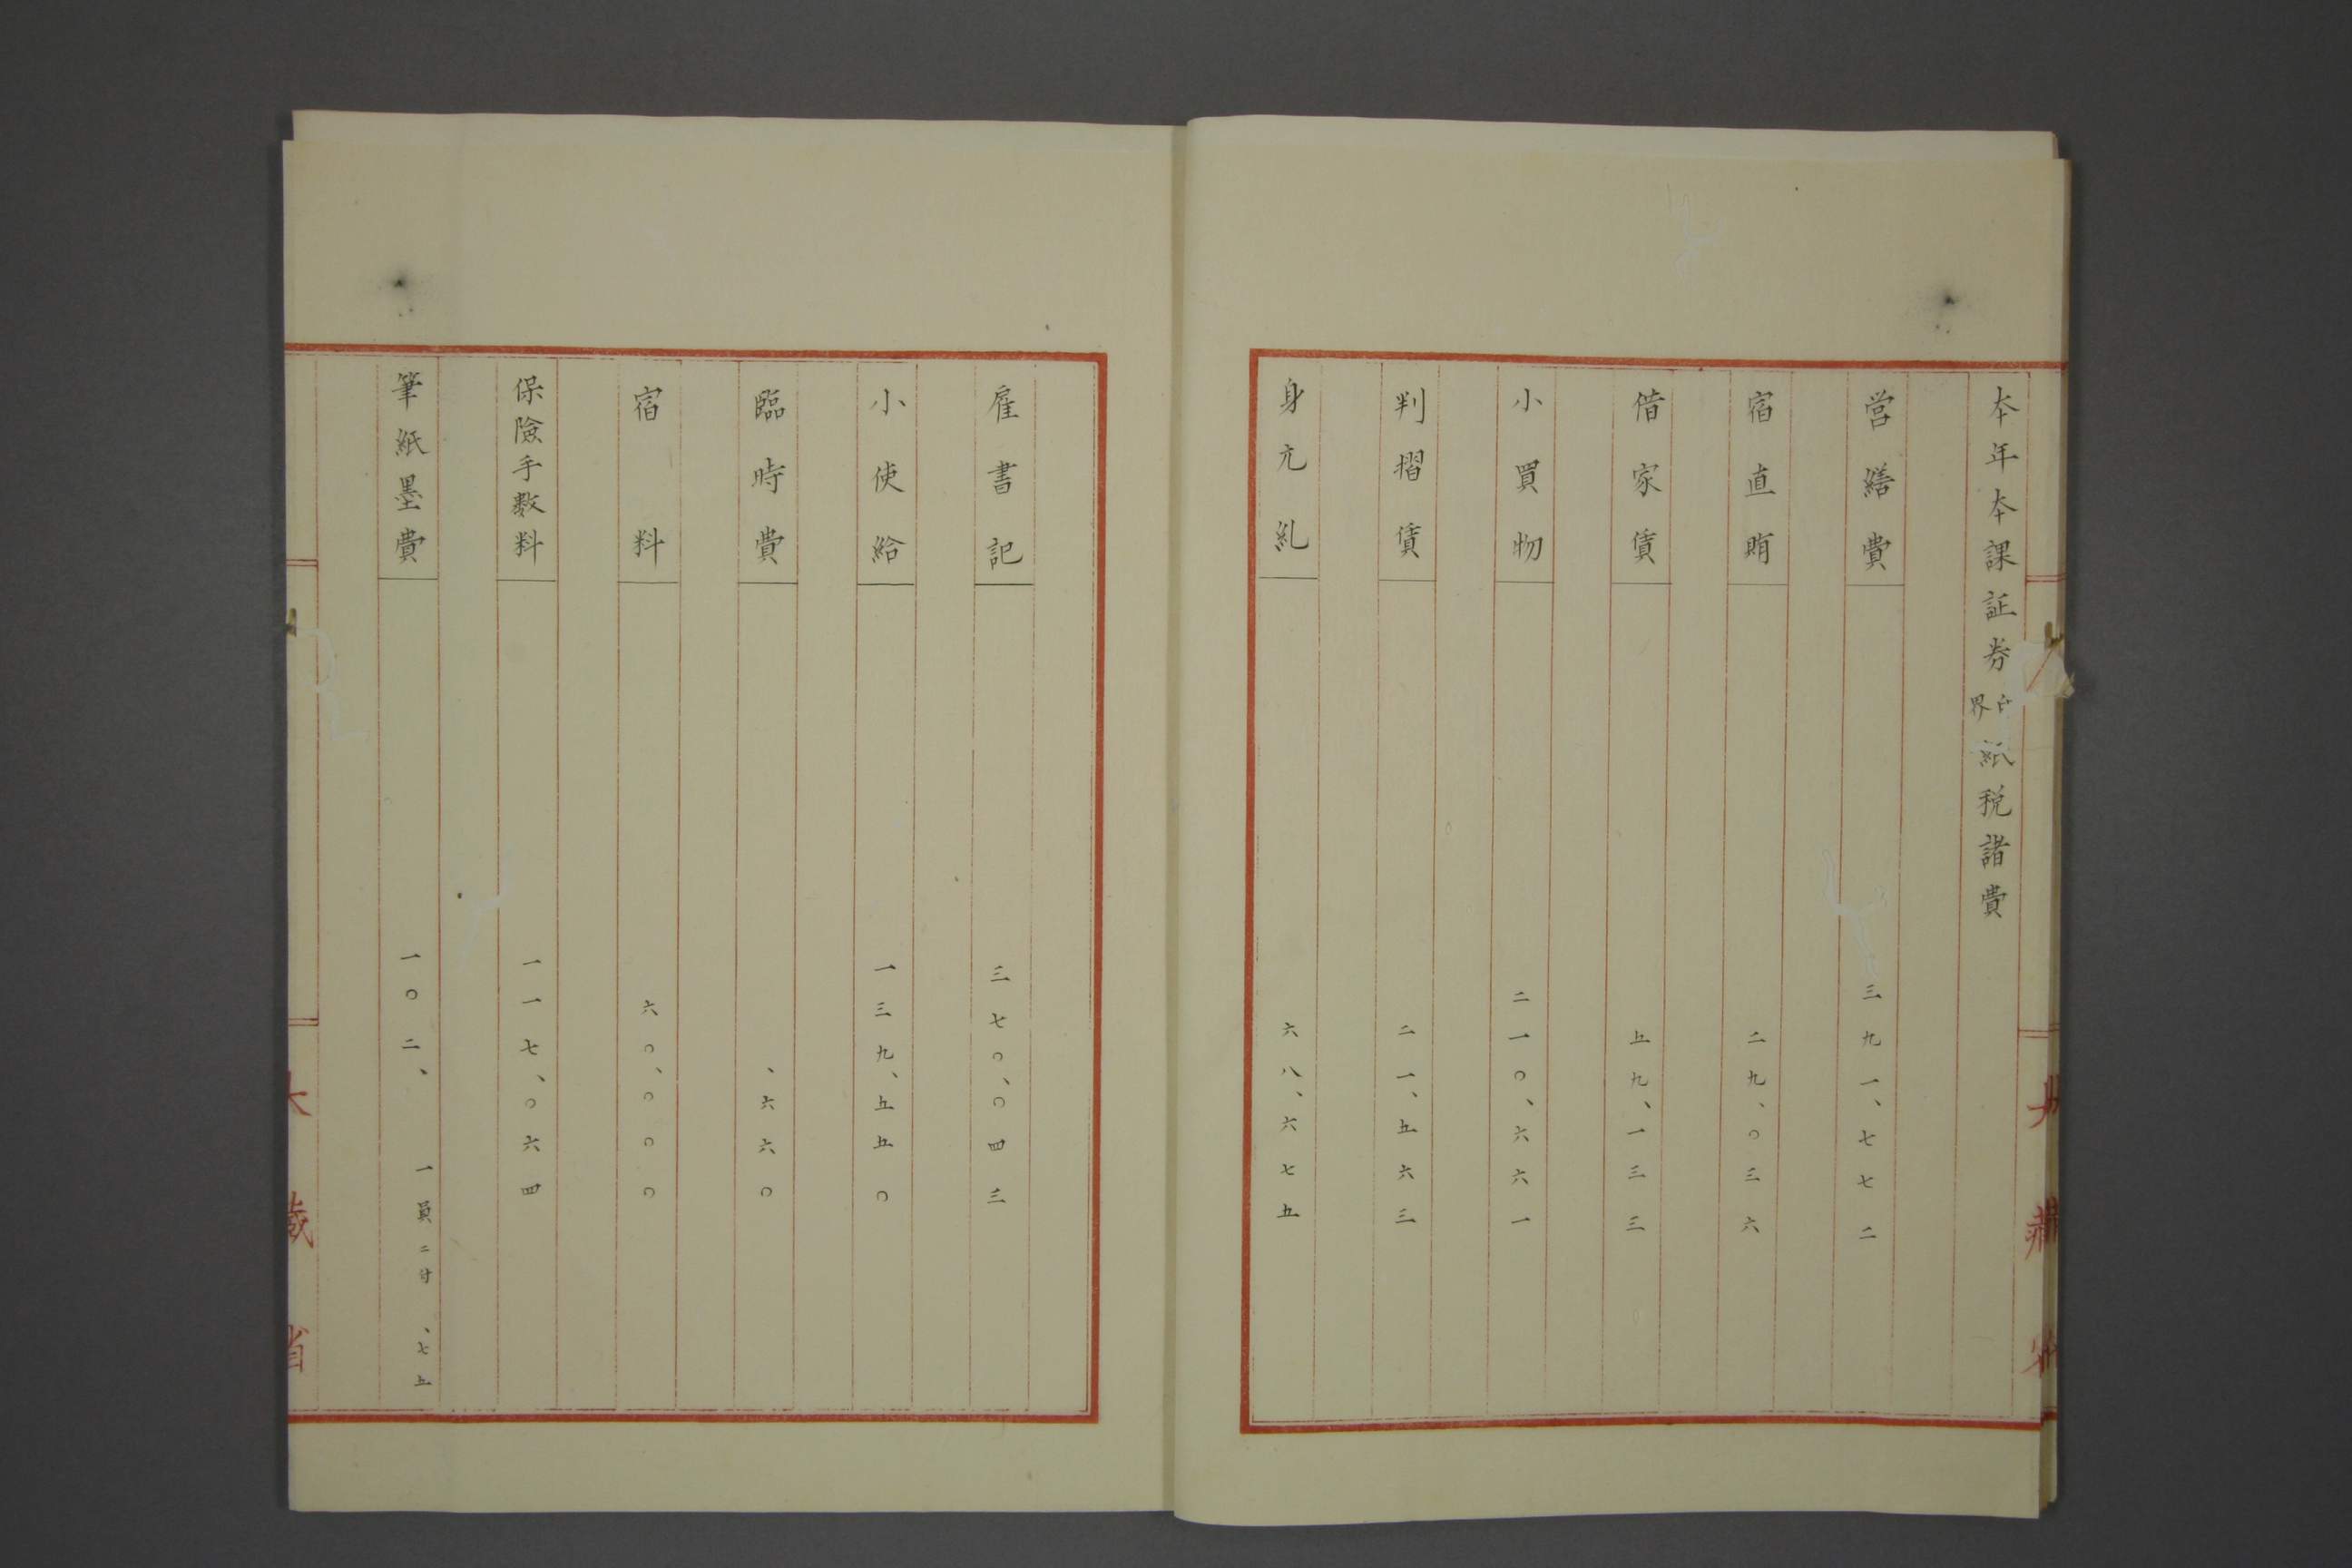 本年本課証券印界紙税諸費
営繕費 三九一、七七二
宿直賄 二九、〇三六
借家賃 五九、一三三
小買物 二一〇、六六一
判摺賃 二一、五六三
身元糺 六八、六七五
雇書記 三七〇、〇四三
小使給 一三九、五五〇
臨時費 、六六〇
宿料 六〇、〇〇〇
保険手数料 一一七、〇六四
筆紙墨費 一〇二、 一員ニ付 、七五
大蔵省